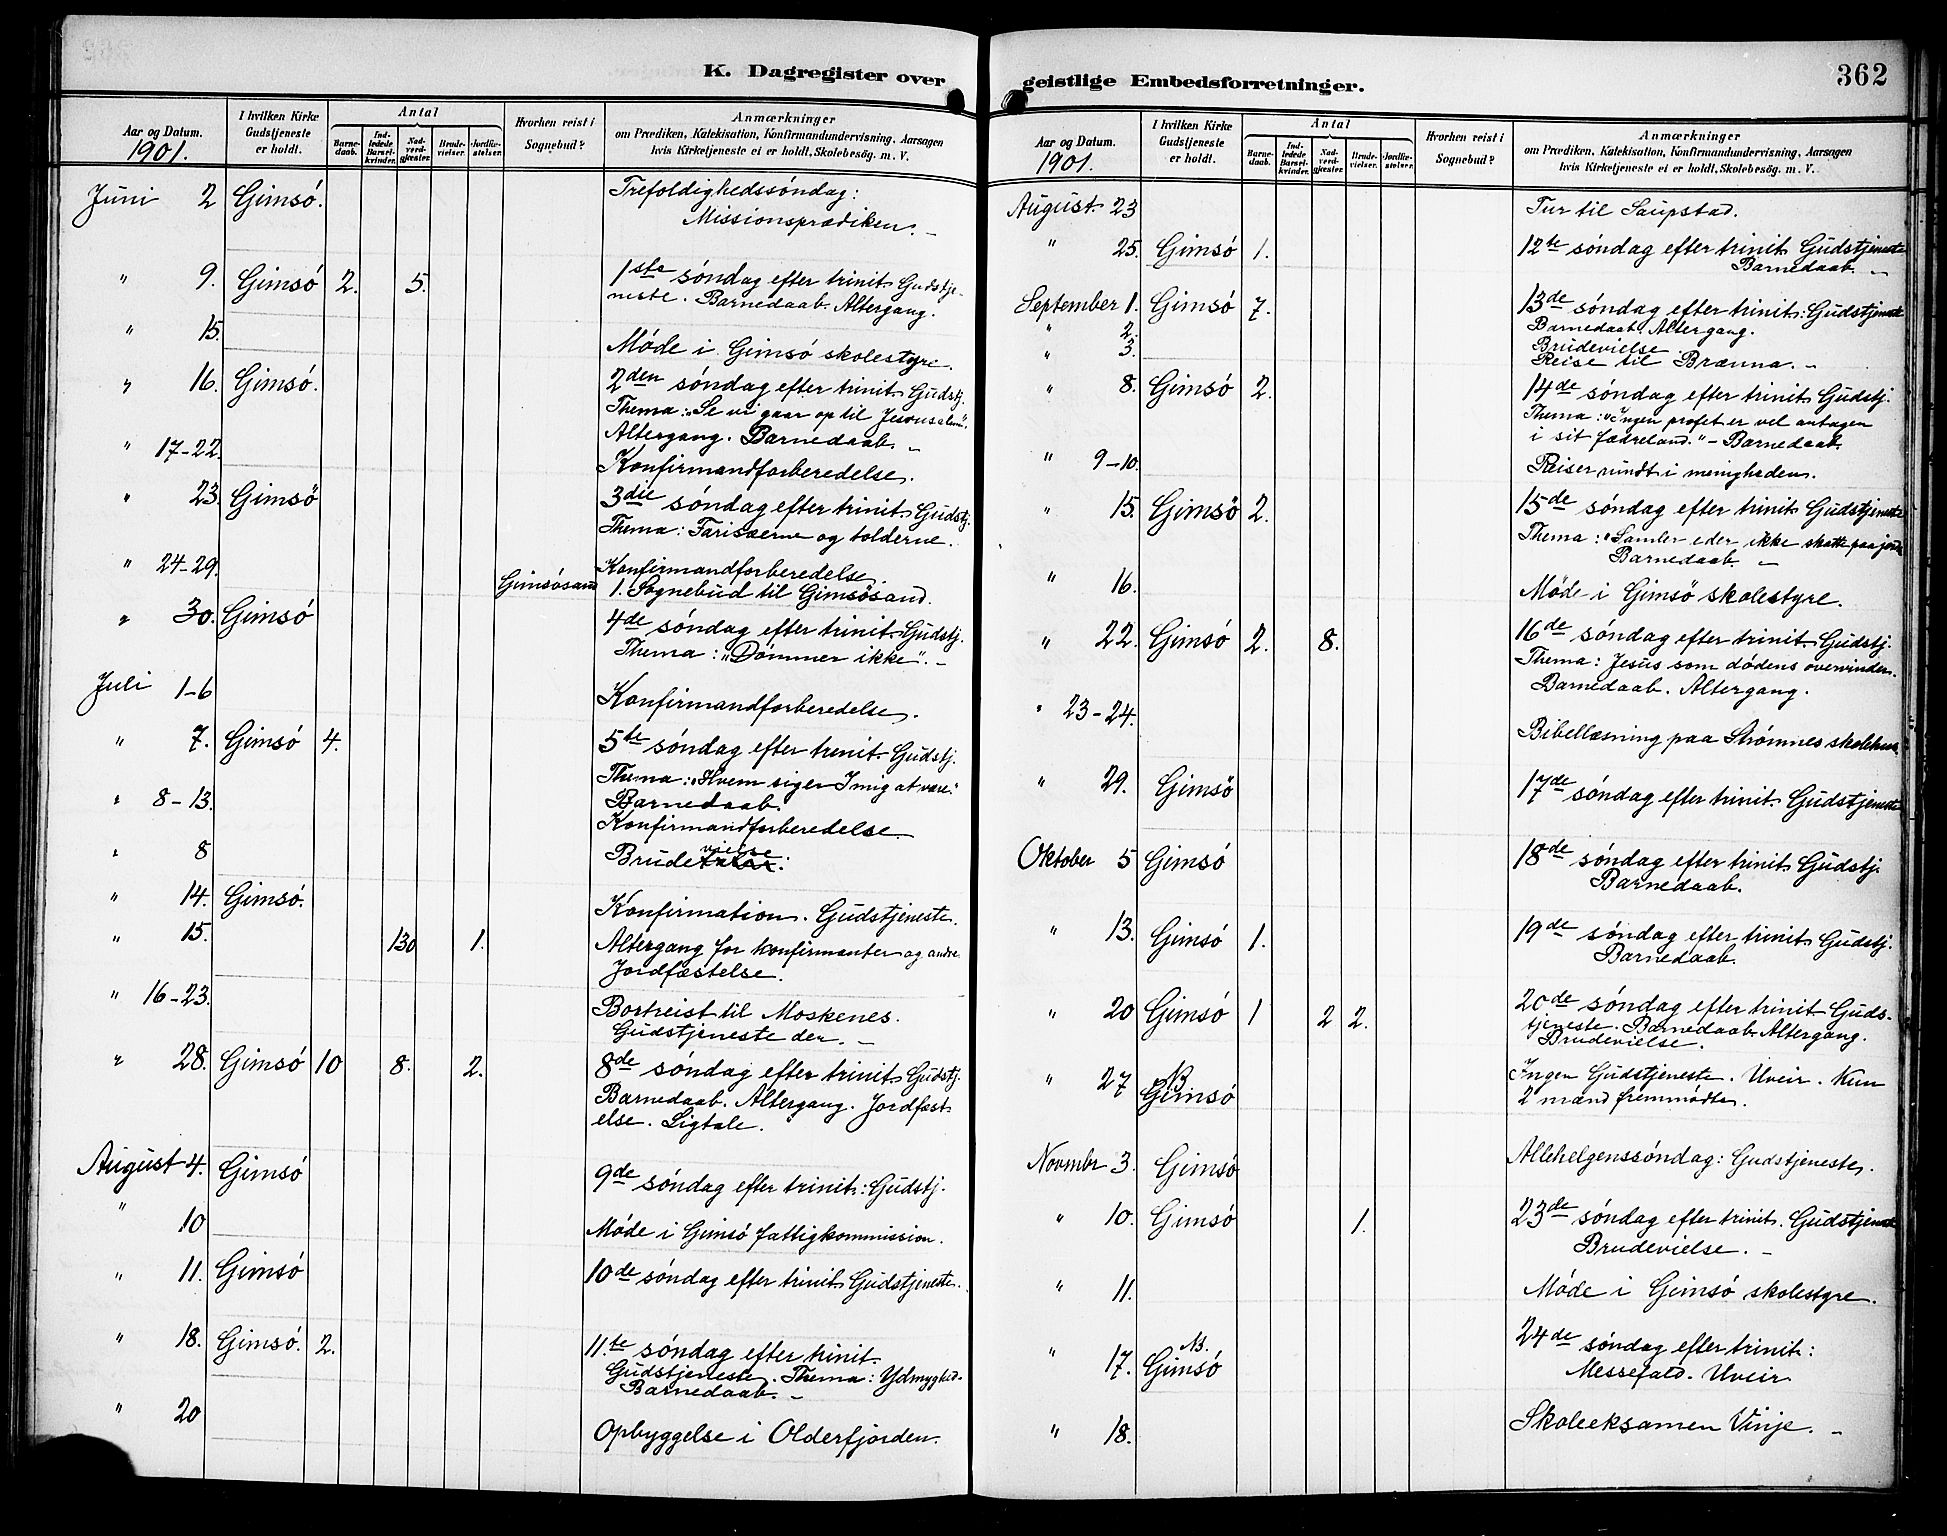 K. Dagregister over
Aar og Datum.
1901.
I hvilken Kirke
Gudstjeneste
er holdt.
Antal
Barne-
daab.
Ind-
ledede
Barsel-
kvinder.
Nad-
verd-
gjester.
Brude-
vielser.
Jordfæ-
stelser.
Hvorhen reist i
Sognebud?
Anmærkninger
om Prædiken, Katekisation, Konfirmandundervisning, Aarsagen
hvis Kirketjeneste ei er holdt, Skolebesøg. m. V.
Juni 2 Gimsó. Trefoldighedssóndag:
Missionsprædiken. –
" 9. Gimsó 2. 5. 1ste sóndag efter trinit. Gudstje-
neste. Barnedaab. Altergang.
" 15. Móde i Gimsó skolestyre.
" 16. Gimsó. 2den sóndag efter trinit. Gudstj.
Thema: "Se vi gaar op til Jerusalem".
Altergang. Barnedaab. –
" 17-22. Konfirmandforberedelse.
" 23. Gimsö 3die sóndag efter trinit. Gudstj.
Thema: Farisæerne og tolderne.
" 24-29. Konfirmandforberedelse.
Gimsösand 1. Sognebud til Gimsösand.
" 30. Gimsó 4de sóndag efter trinit. Gudstj.
Thema: "Dómmer ikke". –
Juli 1-6 Konfirmandforberedelse.
" 7. Gimsó 4. 5te sóndag efter trinit. Gudstj.
Thema: "Hvem siger I mig at være".
Barnedaab.
" 8-13. Konfirmandforberedelse
" 8 Brudevielse:
" 14. Gimsó. Konfirmation. Gudstjeneste.
" 15. 130 1. Altergang for konfirmanter og andre.
Jordfæstelse.
" 16-23. Bortreist til Moskenes.
Gudstjeneste der. –
" 28. Gimsó 10 8. 2. 8de sóndag efter trinit. Gudstj.
Barnedaab. Altergang. Jordfæst
else. Ligtale.
August 4. Gimsó 9de sóndag efter trinit: Gudstj.
" 10 Móde i Gimsó fattigkommission.
" 11. Gimsó 10de sóndag efter trinit. Gudstjeneste.
" 18. Gimsó. 2. 11.te sóndag efter trinit.
Gudstjeneste. Thema: Ydmyghed.
Barnedaab. –
" 20 Opbyggelse i Olderfjorden.
geistlige Embedsforretninger.
362
Aar og Datum.
1901.
I hvilken Kirke
Gudstjeneste
er holdt.
Antal
Barne-
daab.
Ind-
ledede
Barsel-
kvinder.
Nad-
verd-
gjester.
Brude-
vielser.
Jordfæ-
stelser.
Hvorhen reist i
Sognebud?
Anmærkninger
om Prædiken, Katekisation, Konfirmandundervisning, Aarsagen
hvis Kirketjeneste ei er holdt, Skolebesøg. m. V.
August 23 Tur til Saupstad.
" 25. Gimsó 1. 12te sóndag efter trinit. Gudstjeneste
Barnedaab. –
September 1. Gimsó 7. 13de sóndag efter trinit: Gudstjeneste
Barnedaab. Altergang.
" 2. Brudevielse
" 3. Reise til Brenna. –
" 8. Gimsó 2. 14de sóndag efter trinit. Gudstj.
Thema: "Ingen profet er vel antagen
i sit fædreland." – Barnedaab.
" 9-10. Reiser rundt i menigheden.
" 15. Gimsö 2. 15de sóndag efter trinit. Gudstjeneste
Thema: "Samler eder ikke skatte paa jord
Barnedaab. –
" 16. Móde i Gimsö skolestyre.
" 22. Gimsó 2. 8. 16de sóndag efter trinit. Gudstj.
Thema: Jesus som dódens overvinder.
Barnedaab. Altergang.
" 23-24. Bibellæsning paa Strømnes skolehus.
" 29. Gimsö 17de sóndag efter trinit. Gudstjeneste
Oktober 5 Gimsó 18de sóndag efter trinit. Gudstj.
Barnedaab.
" 13. Gimsó 1. 19de sóndag efter trinit. Gudstj.
Barnedaab.
" 20 Gimsó 1 2 2. 20de sóndag efter trinit. Guds-
tjeneste. Barnedaab. Altergang.
Brudevielse.
" 27 Gimsó Ingen Gudstjeneste. Uveir. Kun
2 mænd fremmódte.
Novembr 3. Gimsó Allehelgenssóndag: Gudstjeneste.
" 10. Gimsó 1. 23de sóndag efter trinit. Gudstjeneste
Brudevielse. –
" 11. Móde i Gimsó skolestyre.
" 17. Gimsó 24de sóndag efter trinit:
Messefald. Uveir
" 18. Skoleeksamen Vinje. –